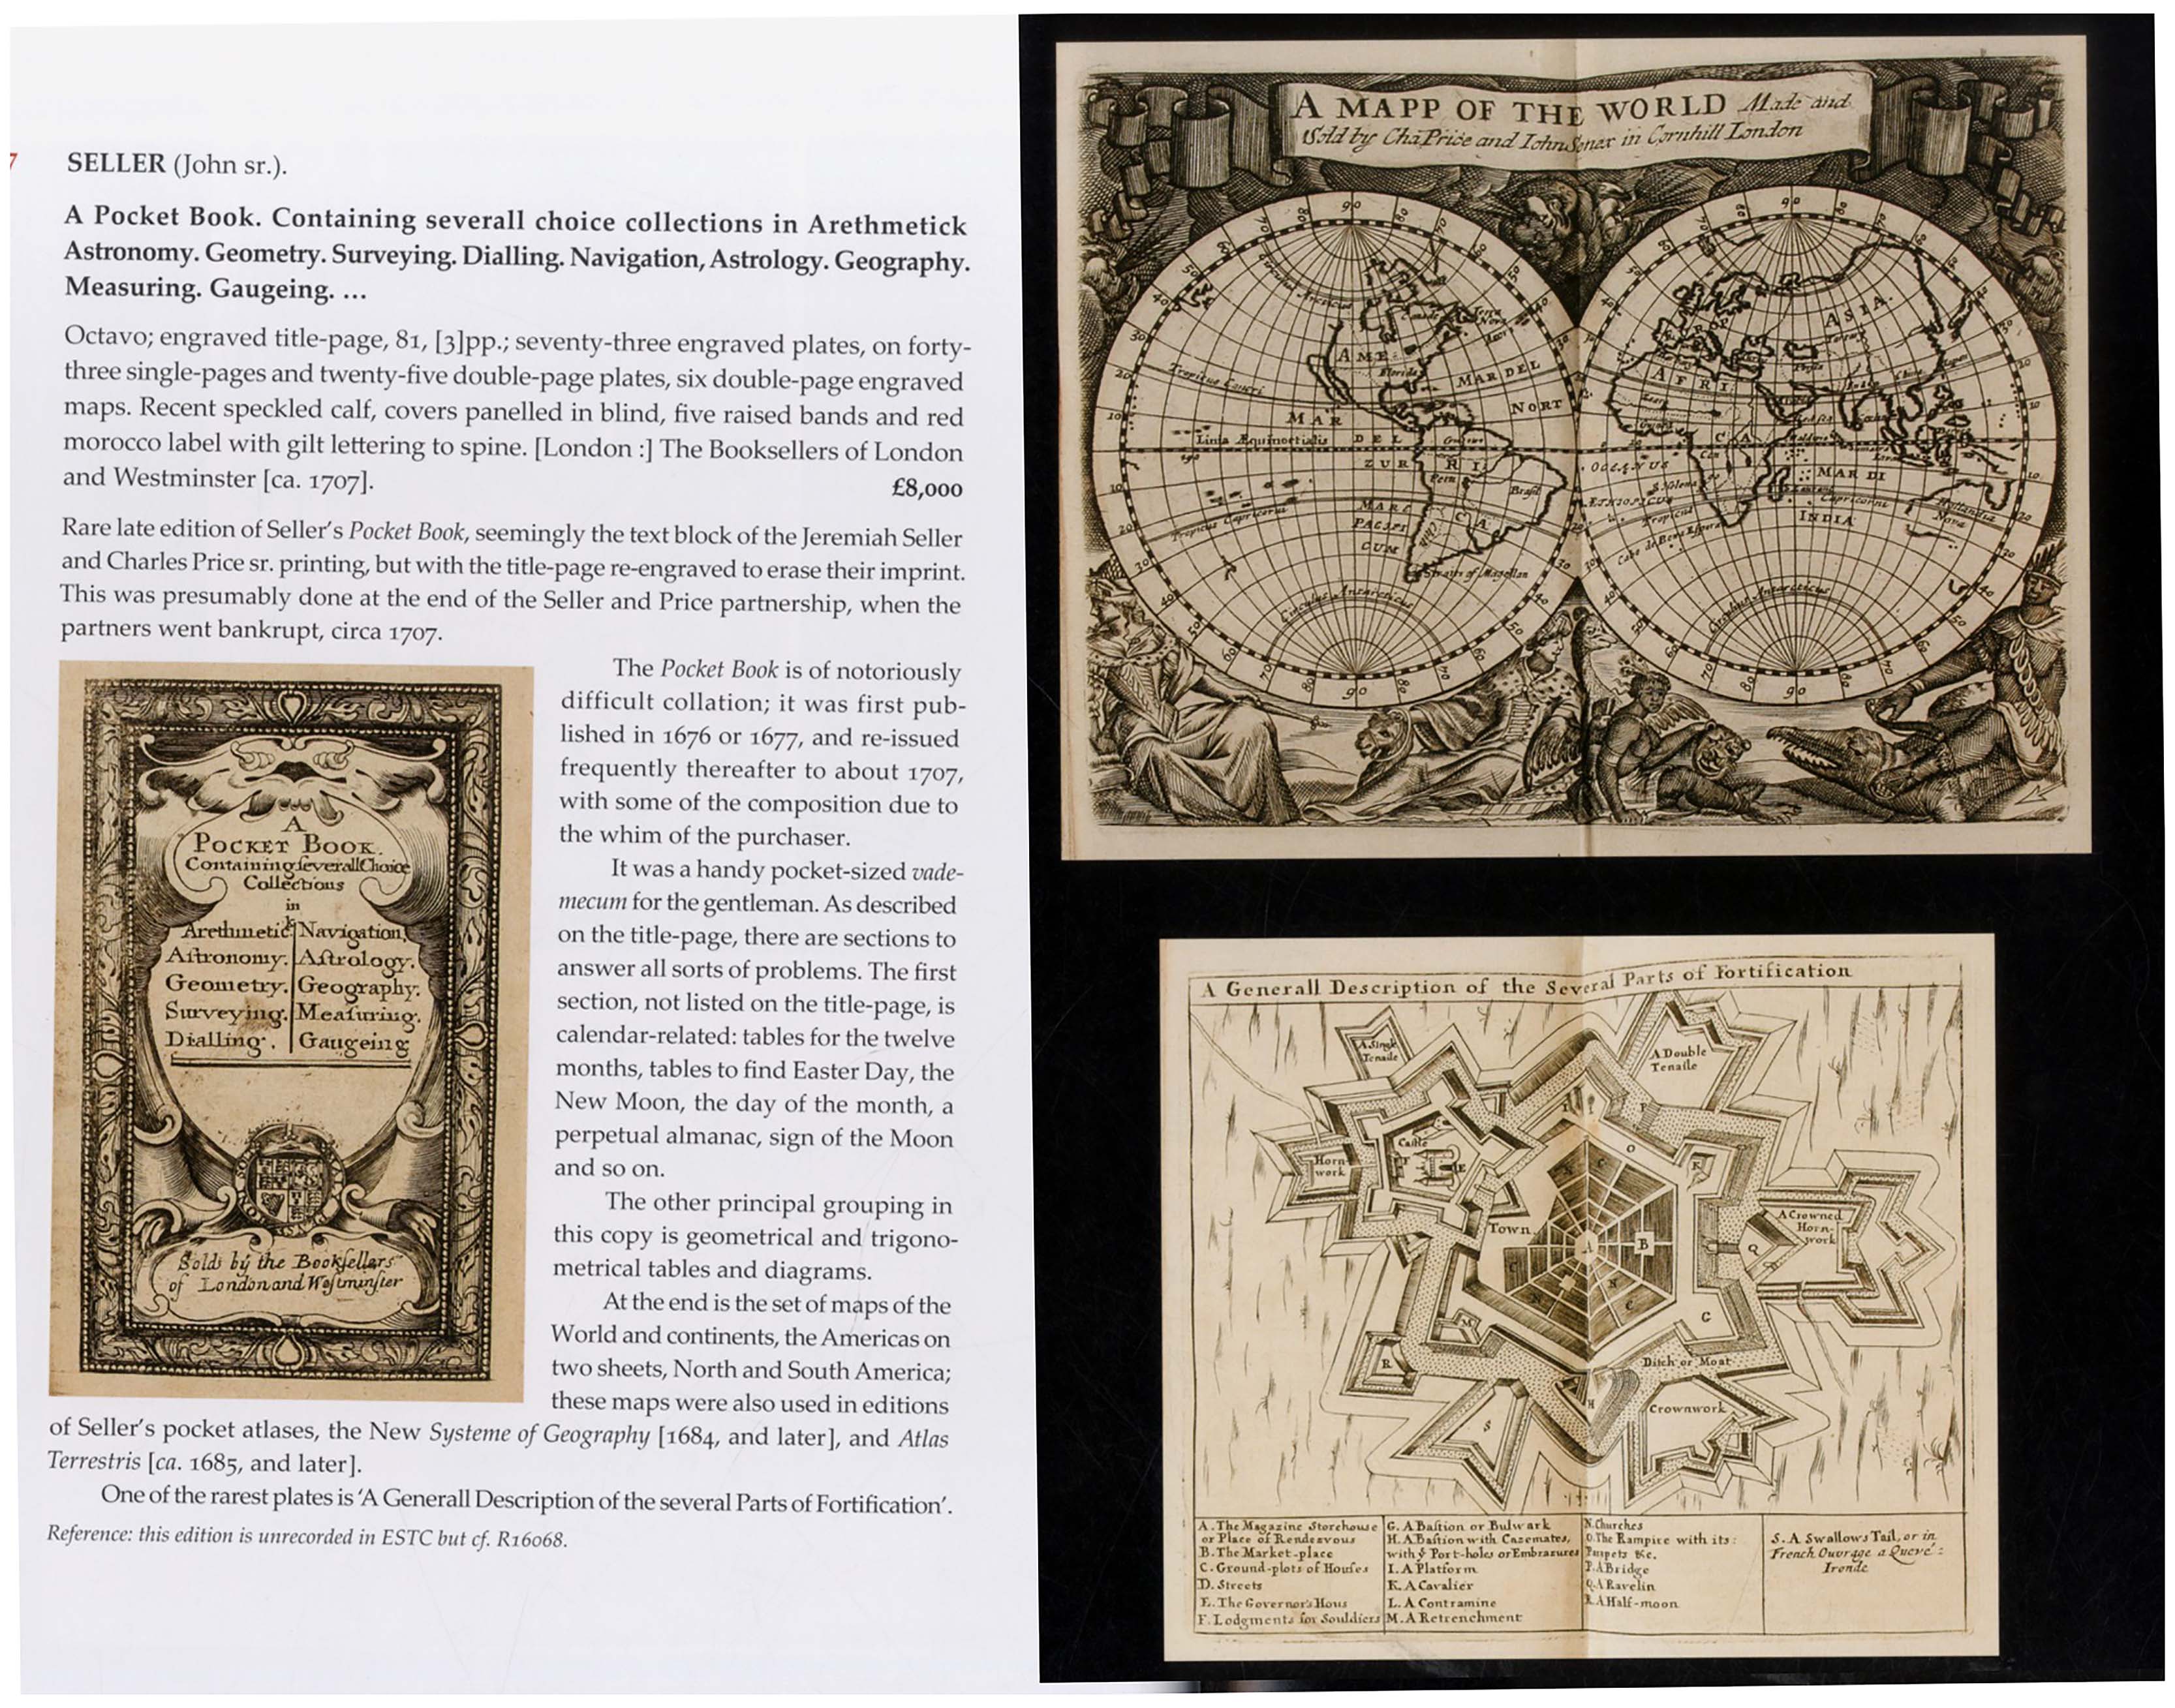 7
SELLER (John sr.).
A Pocket Book. Containing severall choice collections in Arethmetick
Astronomy. Geometry. Surveying. Dialling. Navigation, Astrology. Geography.
Measuring. Gaugeing. ...
Octavo; engraved title-page, 81, [3]pp.; seventy-three engraved plates, on forty-
three single-pages and twenty-five double-page plates, six double-page engraved
maps. Recent speckled calf, covers panelled in blind, five raised bands and red
morocco label with gilt lettering to spine. [London :] The Booksellers of London
and Westminster [ca. 1707]. £8,000
Rare late edition of Seller's Pocket Book, seemingly the text block of the Jeremiah Seller
and Charles Price sr. printing, but with the title-page re-engraved to erase their imprint.
This was presumably done at the end of the Seller and Price partnership, when the
partners went bankrupt, circa 1707.
The Pocket Book is of notoriously
difficult collation; it was first pub-
lished in 1676 or 1677, and re-issued
frequently thereafter to about 1707,
with some of the composition due to
the whim of the purchaser.
It was a handy pocket-sized vade-
mecum for the gentleman. As described
on the title-page, there are sections to
answer all sorts of problems. The first
section, not listed on the title-page, is
calendar-related: tables for the twelve
months, tables to find Easter Day, the
New Moon, the day of the month, a
perpetual almanac, sign of the Moon
and so on.
The other principal grouping in
this copy is geometrical and trigono-
metrical tables and diagrams.
At the end is the set of maps of the
World and continents, the Americas on
two sheets, North and South America;
these maps were also used in editions
of Seller's pocket atlases, the New Systeme of Geography [1684, and later], and Atlas
Terrestris [ca. 1685, and later].
One of the rarest plates is 'A Generall Description of the several Parts of Fortification'.
Reference: this edition is unrecorded in ESTC but cf. R16068.
A
POCKET BOOK.
Containing severall Choice
Collections
in
Arethmetick Navigation,
Astronomy. Astrology.
Geometry. Geography.
Surveying. Measuring.
Dialling. Gaugeing
Sold by the Booksellers
of London and Westminster
A MAPP OF THE WORLD Made and
Sold by Cha Price and Iohn Senex in Cornhill London
Circulus Arcticus
Tropicus Cancri
AME
RI
CA
Canada
Florida
MAR DEL
NORT
MAR
DEL
ZUR
Linia Æquinoctialis
Peru
Brasil
Chili
MARE
PACIFI
CUM
Tropicus Capricorni
Straits of Magellan
Circulus Antarcticus
EUROP
ASIA
AFRI
CA
OCEANUS
ÆTHIOPICUS
S. Helena
Tropicus
Capricorni
Cabo de Bona Espera
MAR DI
INDIA
Hollandia
Nova
Circulus Antarcticus
A Generall Description of the Several Parts of Fortification
A Single
Tenaile
A Double
Tenaile
Horn
work
Castle
F
E
Town
A
B
C
O
K
Q
A Crowned
Horn-
work
M
R
G
Ditch or Moat
H
S
Crownwork
A. The Magazine Storehouse
or Place of Rendezvous
B. The Market-place
C. Ground-plots of Houses
D. Streets
E. The Governor's Hous
F. Lodgments for Souldiers
G. A Bastion or Bulwark
H. A Bastion with Casemates,
with ye Port-holes or Embrazures
I. A Platform
K. A Cavalier
L. A Contramine
M. A Retrenchment
N. Churches
O. The Rampire with its
Parpets &c.
P. A Bridge
Q. A Ravelin
R. A Half-moon
S. A Swallows Tail, or in
French Ouvrage a Queve:
Ironde